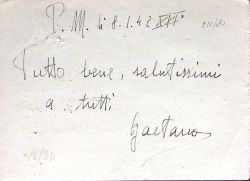 P. M. li 8.1.42 XX
211/20
Tutto bene, salutissimi
a tutti
Gaetano
16/20